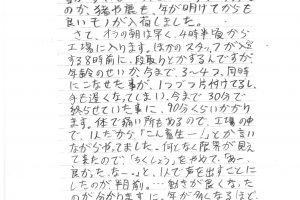 のか、猪や鹿も、年が明けてからも
良いモノが入荷しました。
さて、オラの朝は早く、4時半頃から
工場に入ります。ほかのスタッフが入
する8時前に、段取りとかするんですが、
年齢のせいか、今まで、3〜4つ、同時
にこなせた事が、1つづつ片付けてるし、
手も遅くなってしまい、今まで30分で
終らせていた事に、90分くらいかかり
ます。体で痛い所もあるので、工場の中
で、1人だから「こん畜生ー!」とか言い
ながらやってました。何となく限界が見え
て来たので、「ちくしょう」をやめて、「あー、
良かったなー。」と、1人で声を出すことに
したのが半月前。…動きが良くなった
のが分かります。年が多くなるほど、